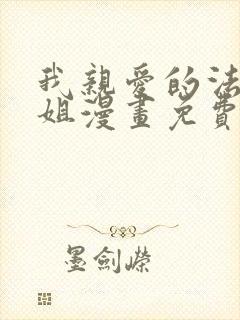 我親愛的法
姐漫畫免費
墨劍嶸